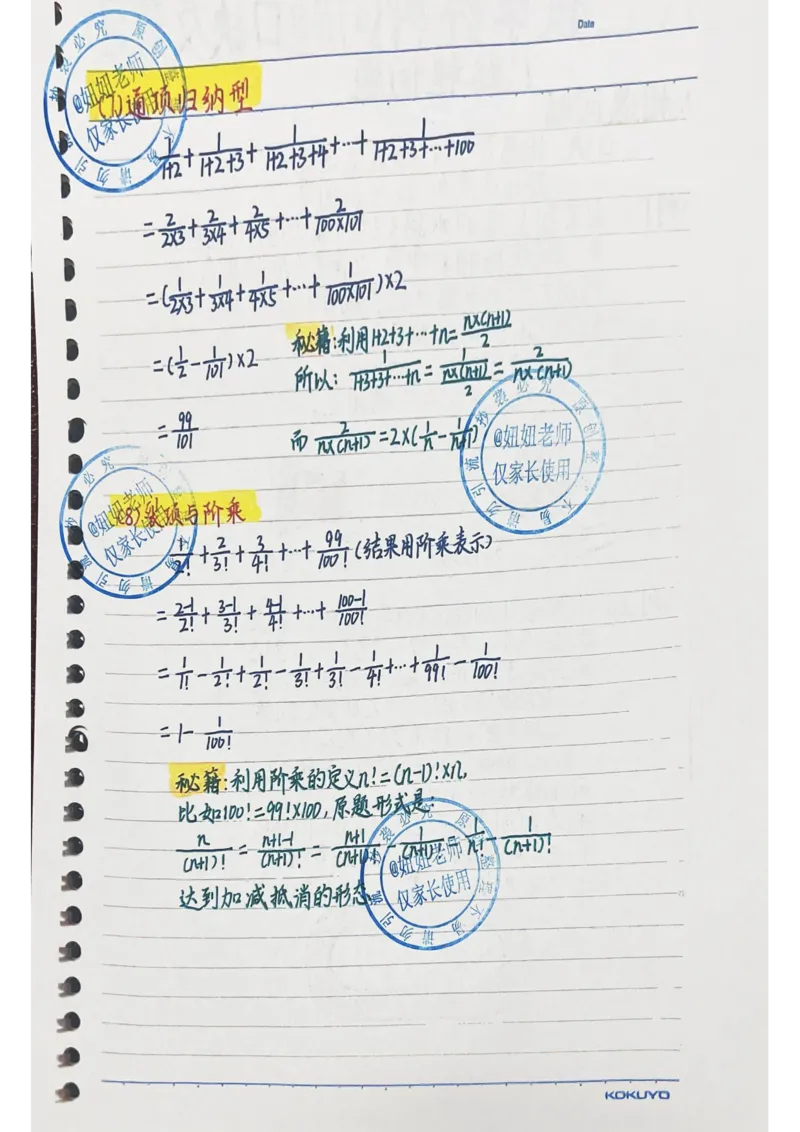 Date
(7)通项归纳型
1/(1+2) + 1/(1+2+3) + 1/(1+2+3+4) + ⋯ + 1/(1+2+3+⋯+100)
= 2/(2×3) + 2/(3×4) + 2/(4×5) + ⋯ + 2/(100×101)
= (1/(2×3) + 1/(3×4) + 1/(4×5) + ⋯ + 1/(100×101))×2
= (1/2 - 1/101)×2
= 99/101
秘籍:利用1+2+3+⋯+n= n×(n+1)/2
所以: 1/(1+3+3+⋯+n) = 1/(n×(n+1)/2) = 2/(n×(n+1))
而 2/(n×(n+1)) = 2×(1/n - 1/(n+1))
(8)裂项与阶乘
1/2! + 2/3! + 3/4! + ⋯ + 99/100! (结果用阶乘表示)
= (2-1)/2! + (3-1)/3! + (4-1)/4! + ⋯ + (100-1)/100!
= 1/1! - 1/2! + 1/2! - 1/3! + 1/3! - 1/4! + ⋯ + 1/99! - 1/100!
= 1 - 1/100!
秘籍:利用阶乘的定义n!=(n-1)!×n,
比如100!=99!×100,原题形式是:
n/(n+1)! = (n+1-1)/(n+1)! = (n+1)/(n+1)! - 1/(n+1)! = 1/n! - 1/(n+1)!
达到加减抵消的形态
@妞妞老师
仅家长使用
KOKUYO